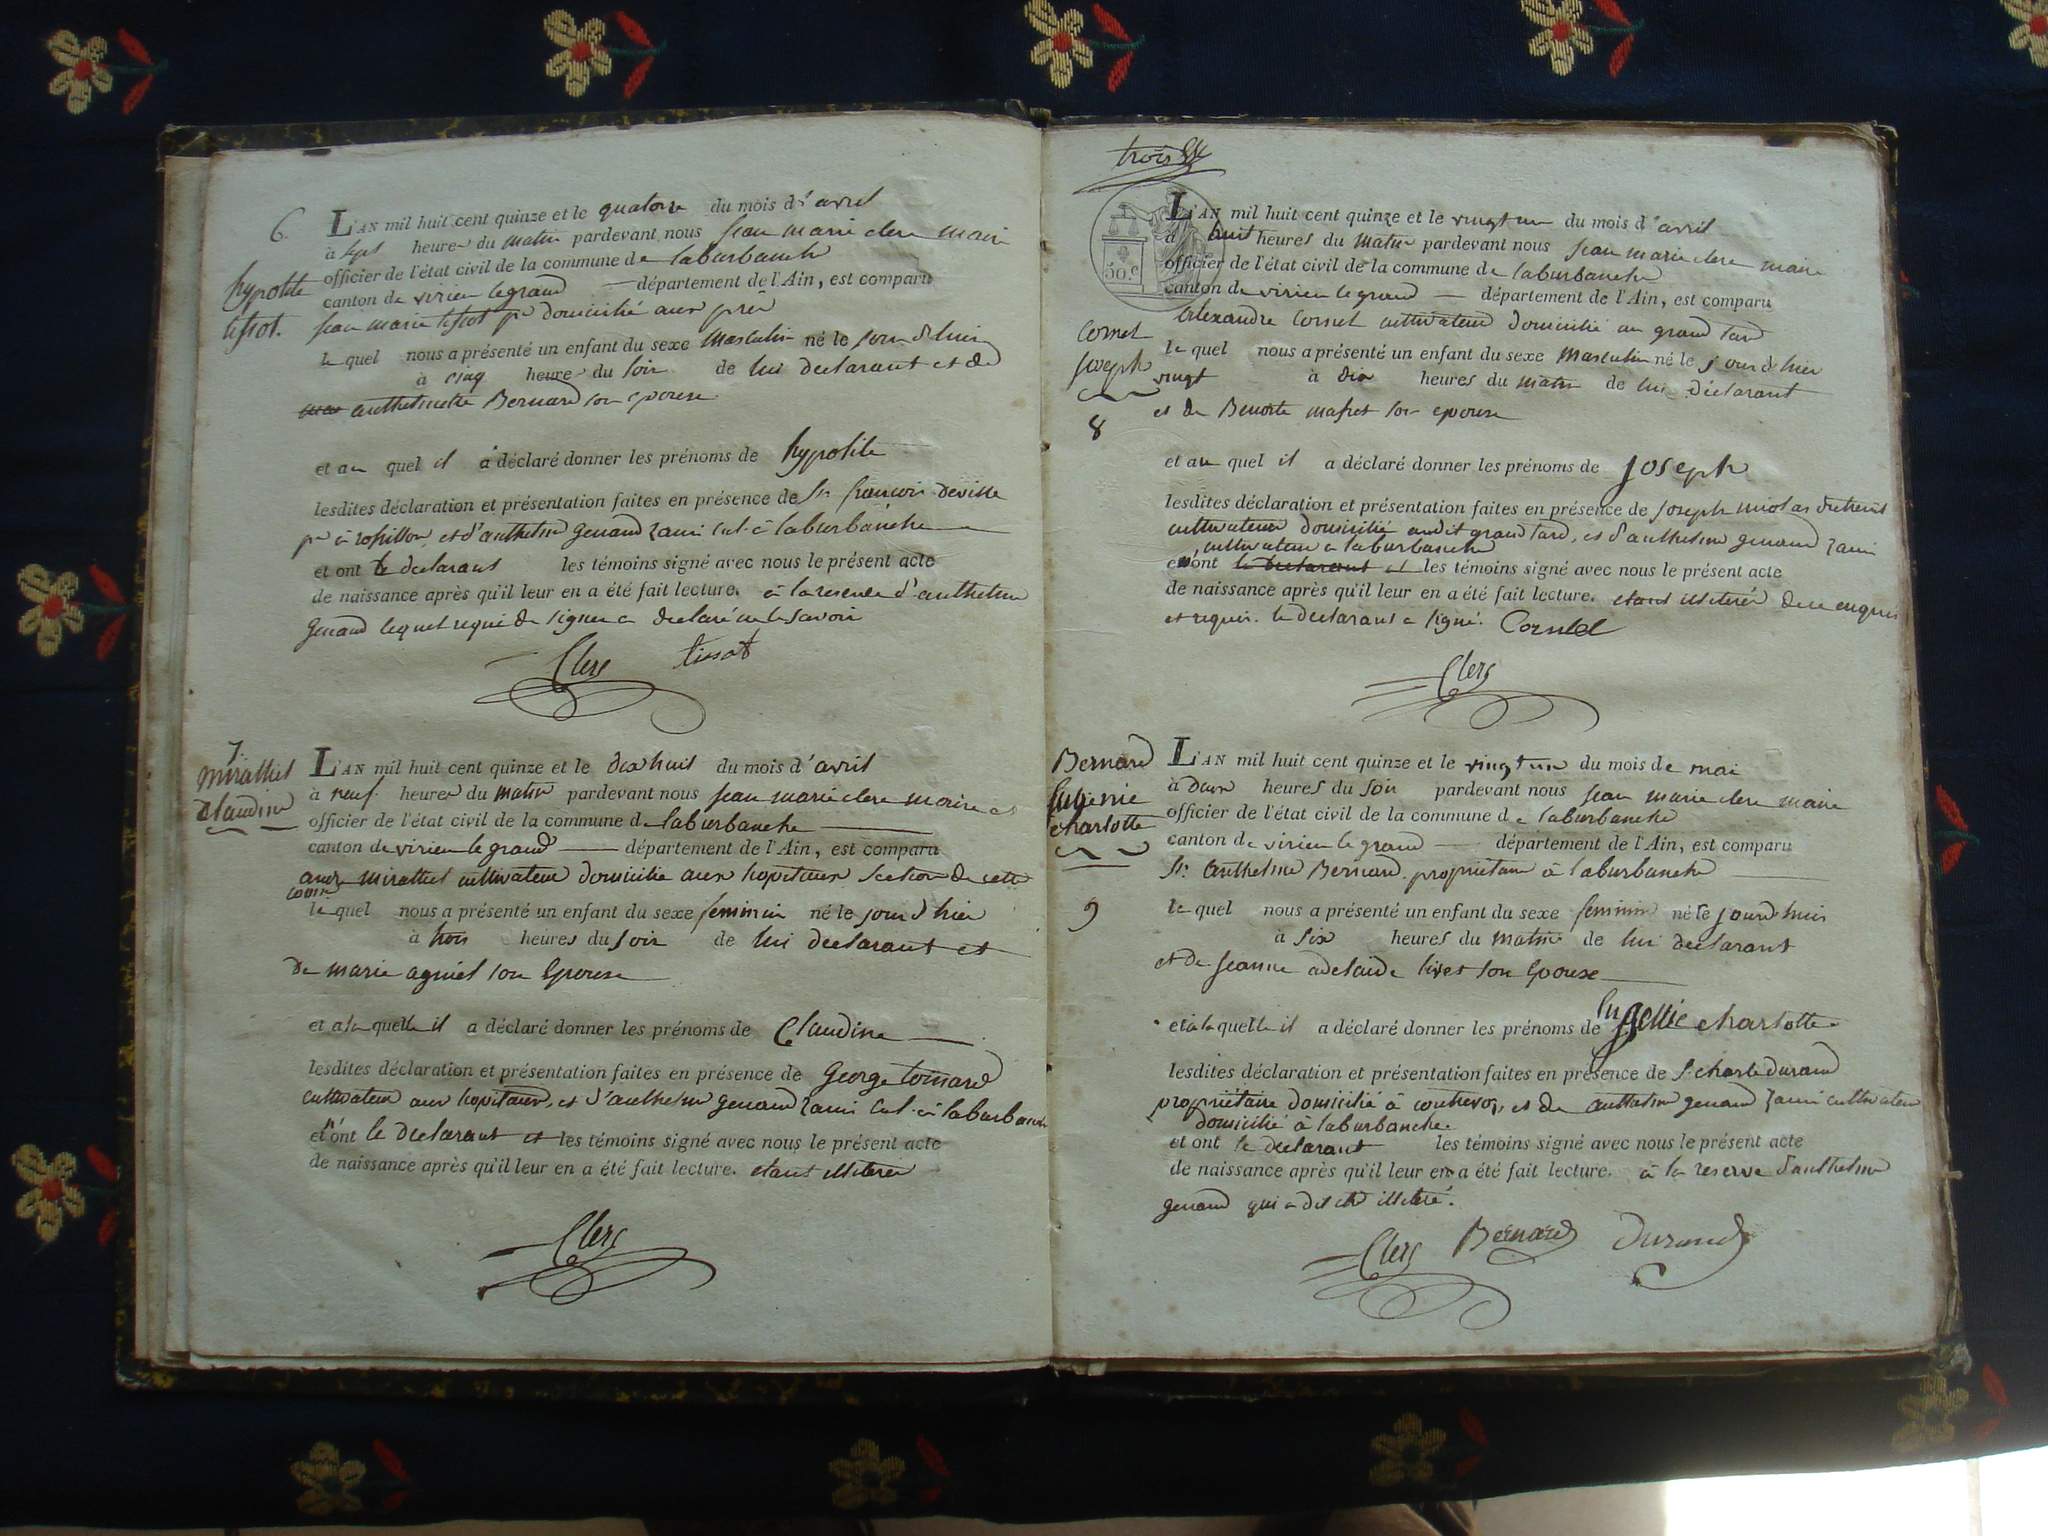 6.
hypolite
tissot.
L'AN mil huit cent quinze et le quatorze du mois d'avril
à sept heures du matin pardevant nous jean marie clerc maire
officier de l'état civil de la commune de laburbanche
canton de virieu legrand — département de l'Ain, est comparu
jean marie tissot pre domicilié aux
le quel nous a présenté un enfant du sexe masculin né le jour d'hui
à cinq heure du soir de lui declarant et de
anthelmette Bernard son epouse
et au quel il a déclaré donner les prénoms de hypolite
lesdites déclaration et présentation faites en présence de Sr. francois deville
pre à rossillon, et d'anthelme genand cul. à laburbanche
et ont le declarant les témoins signé avec nous le présent acte
de naissance après qu'il leur en a été fait lecture. à la reserve d'anthelme
genand lequel requi de signer a declaré ne le savoir
Clerc tissot
7.
miralliet
claudine
L'AN mil huit cent quinze et le dix huit du mois d'avril
à neuf heures du matin pardevant nous jean marie clerc maire et
officier de l'état civil de la commune de laburbanche
canton de virieu le grand — département de l'Ain, est comparu
miralliet cultivateur domicilié aux hopitaux section de cette
comne
le quel nous a présenté un enfant du sexe feminin né le jour d'hier
à trois heures du soir de lui declarant et
de marie agniel son Epouse
et a la quelle il a déclaré donner les prénoms de Claudine
lesdites déclaration et présentation faites en présence de George toinard
cultivateur aux hopitaux, et d'anthelme genand cul. à laburbanche
et n'ont le declarant et les témoins signé avec nous le présent acte
de naissance après qu'il leur en a été fait lecture. etant illiterés
Clerc
trois
50.c
Cornet
joseph
8
L'AN mil huit cent quinze et le vingt un du mois d'avril
à huit heures du matin pardevant nous jean marie clerc maire
officier de l'état civil de la commune de laburbanche
canton de virieu le grand — département de l'Ain, est comparu
alexandre Cornet cultivateur domicilié au grand tard
le quel nous a présenté un enfant du sexe masculin né le jour d'hier
vingt à dix heures du matin de lui déclarant
et de Benoite son epouse
et au quel il a déclaré donner les prénoms de joseph
lesdites déclaration et présentation faites en présence de joseph nicolas
cultivateur domicilié audit grand tard, et d'anthelme genand
cultivateur à laburbanche
et n'ont le declarant et les témoins signé avec nous le présent acte
de naissance après qu'il leur en a été fait lecture. etant illiterés de ce enquis
et requis. le declarant a signé. Cornet
Clerc
Bernard
Eugenie
charlotte
9
L'AN mil huit cent quinze et le vingt un du mois de mai
à deux heures du soir pardevant nous jean marie clerc maire
officier de l'état civil de la commune de laburbanche
canton de virieu le grand — département de l'Ain, est comparu
Sr. anthelme Bernard propriétaire à laburbanche
le quel nous a présenté un enfant du sexe feminin né le jourd'hui
à six heures du matin de lui declarant
et de jeanne adelaide livet son Epouse
et à la quelle il a déclaré donner les prénoms de charlotte
lesdites déclaration et présentation faites en présence de Sr charle durand
propriétaire domicilié à contrevoz, et de anthelme genand cultivateur
domicilié à laburbanche.
et ont le declarant les témoins signé avec nous le présent acte
de naissance après qu'il leur en a été fait lecture. à la reserve d'anthelme
genand qui a dit etre illiteré.
Clerc Bernard Durand